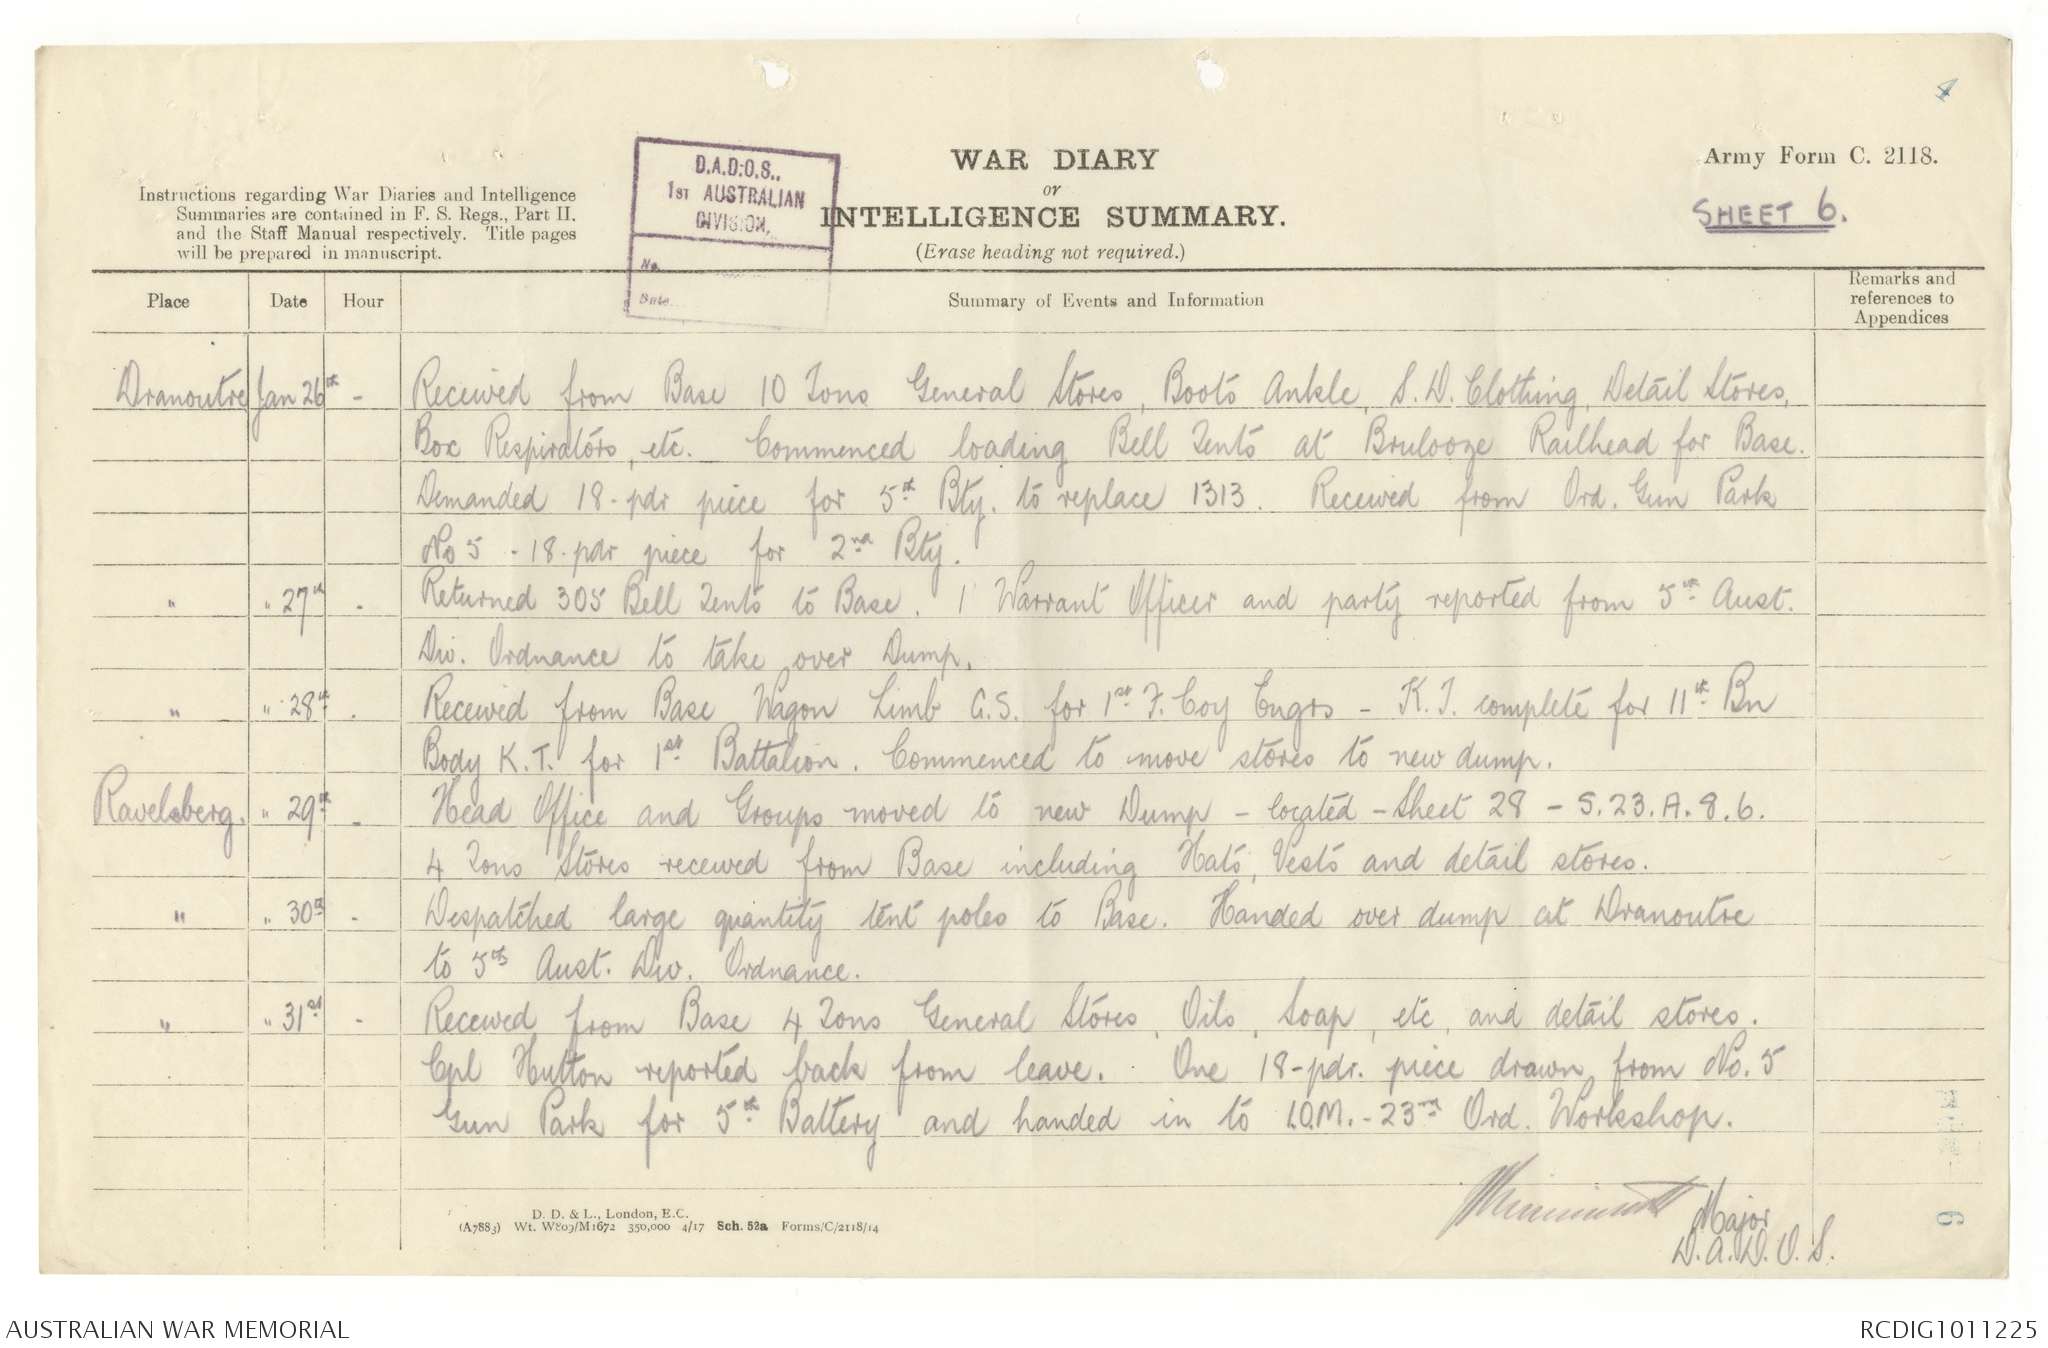 4
Army Form C. 2118.
WAR DIARY
or
INTELLIGENCE SUMMARY.
(Erase heading not required.)
SHEET 6.
Instructions regarding War Diaries and Intelligence
Summaries are contained in F. S. Regs., Part II.
and the Staff Manual respectively. Title pages
will be prepared in manuscript.
D.A.D.O.S.,
1ST AUSTRALIAN
DIVISION.
No.
Date
Place Date Hour Summary of Events and Information Remarks and references to Appendices
Dranoutre Jan 26th - Received from Base 10 Tons General Stores, Boots Ankle, S.D. Clothing, Detail Stores,
Box Respirators, etc. Commenced loading Bell Tents at Brulooze Railhead for Base.
Demanded 18-pdr piece for 5th Bty. to replace 1313. Received from Ord. Gun Park
No 5 - 18-pdr piece for 2nd Bty.
" " 27th - Returned 305 Bell Tents to Base. 1 Warrant Officer and party reported from 5th Aust.
Div. Ordnance to take over Dump.
" " 28th . Received from Base Wagon Limb G.S. for 1st F. Coy Engrs - K.T. complete for 11th Bn
Body K.T. for 1st Battalion. Commenced to move stores to new dump.
Ravelsberg. " 29th - Head Office and Groups moved to new Dump - located - Sheet 28 - S.23.A.8.6.
4 Tons Stores received from Base including Hats, Vests and detail stores.
" " 30th - Despatched large quantity tent poles to Base. Handed over dump at Dranoutre
to 5th Aust. Div. Ordnance.
" " 31st - Received from Base 4 Tons General Stores, Oils, Soap, etc, and detail stores.
Cpl Hutton reported back from leave. One 18-pdr. piece drawn from No. 5
Gun Park for 5th Battery and handed in to I.O.M. - 23rd Ord. Workshop.
Major
D.A.D.O.S.
6
D. D. & L., London, E.C.
(A7883) Wt. W809/M1672 350,000 4/17 Sch. 52a Forms/C/2118/14
AUSTRALIAN WAR MEMORIAL
RCDIG1011225